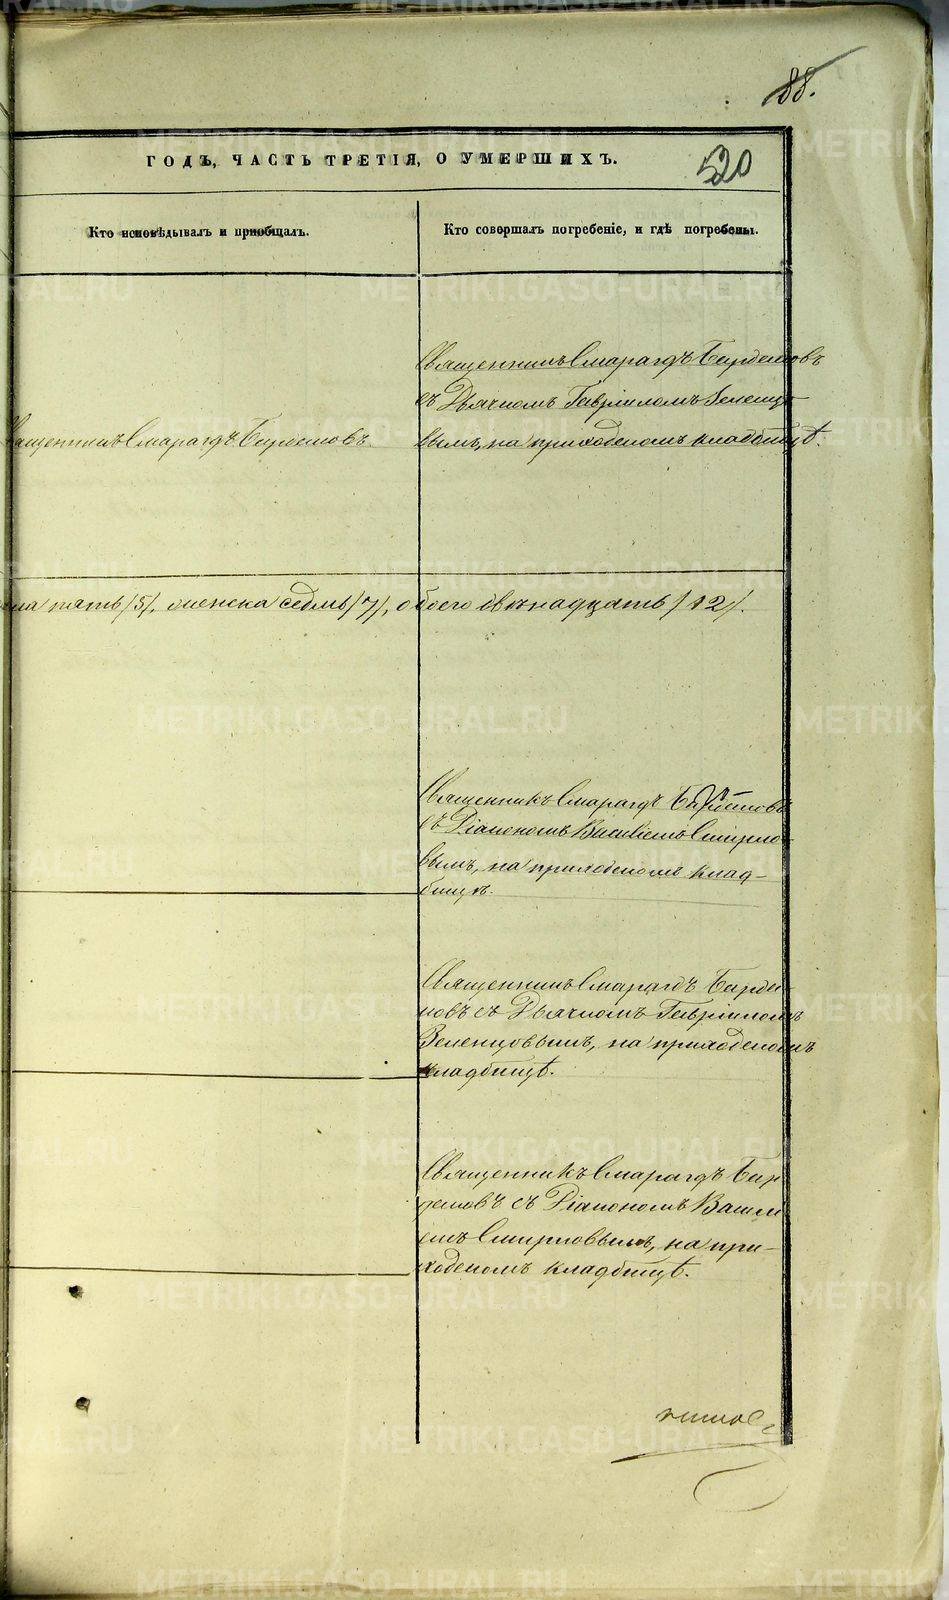 88.
ГОДЪ, ЧАСТЬ ТРЕТІЯ, О УМЕРШИХЪ.
520
Кто исповѣдывалъ и пріобщалъ.
Кто совершалъ погребеніе, и гдѣ погребены.
Священникъ Смарагдъ Бирюковъ
съ Дьячкомъ Гавріиломъ Зеленцо-
вымъ, на приходскомъ кладбищѣ.
Священникъ Смарагдъ
пять /5/, женска седмь /7/, обоего двѣнадцать /12/.
Священникъ Смарагдъ
съ Діакономъ Василіемъ Смирно-
вымъ, на приходскомъ клад-
бищѣ.
Священникъ Смарагдъ
съ Дьячкомъ Гавріиломъ
Зеленцовымъ, на приходскомъ
кладбищѣ.
Священникъ Смарагдъ
съ Діакономъ Васил
емъ Смирновымъ, на при-
ходскомъ кладбищѣ.
METRIKI.GASO-URAL.RU